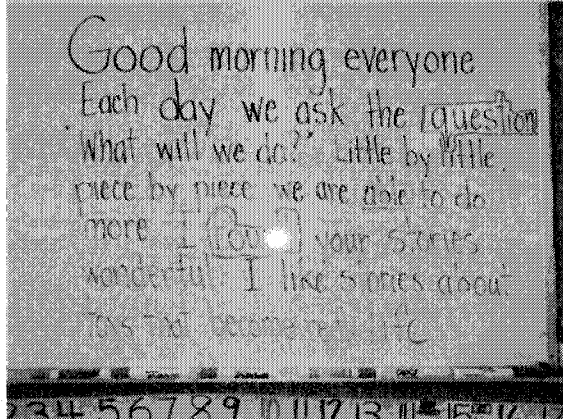 Good morning everyone
Each day we ask the question
"What will we do?" Little by little,
piece by piece we are able to do
more. I found your stories
wonderful. I like stories about
toys that become real life
2 3 4 5 6 7 8 9 10 11 12 13 14 15 16